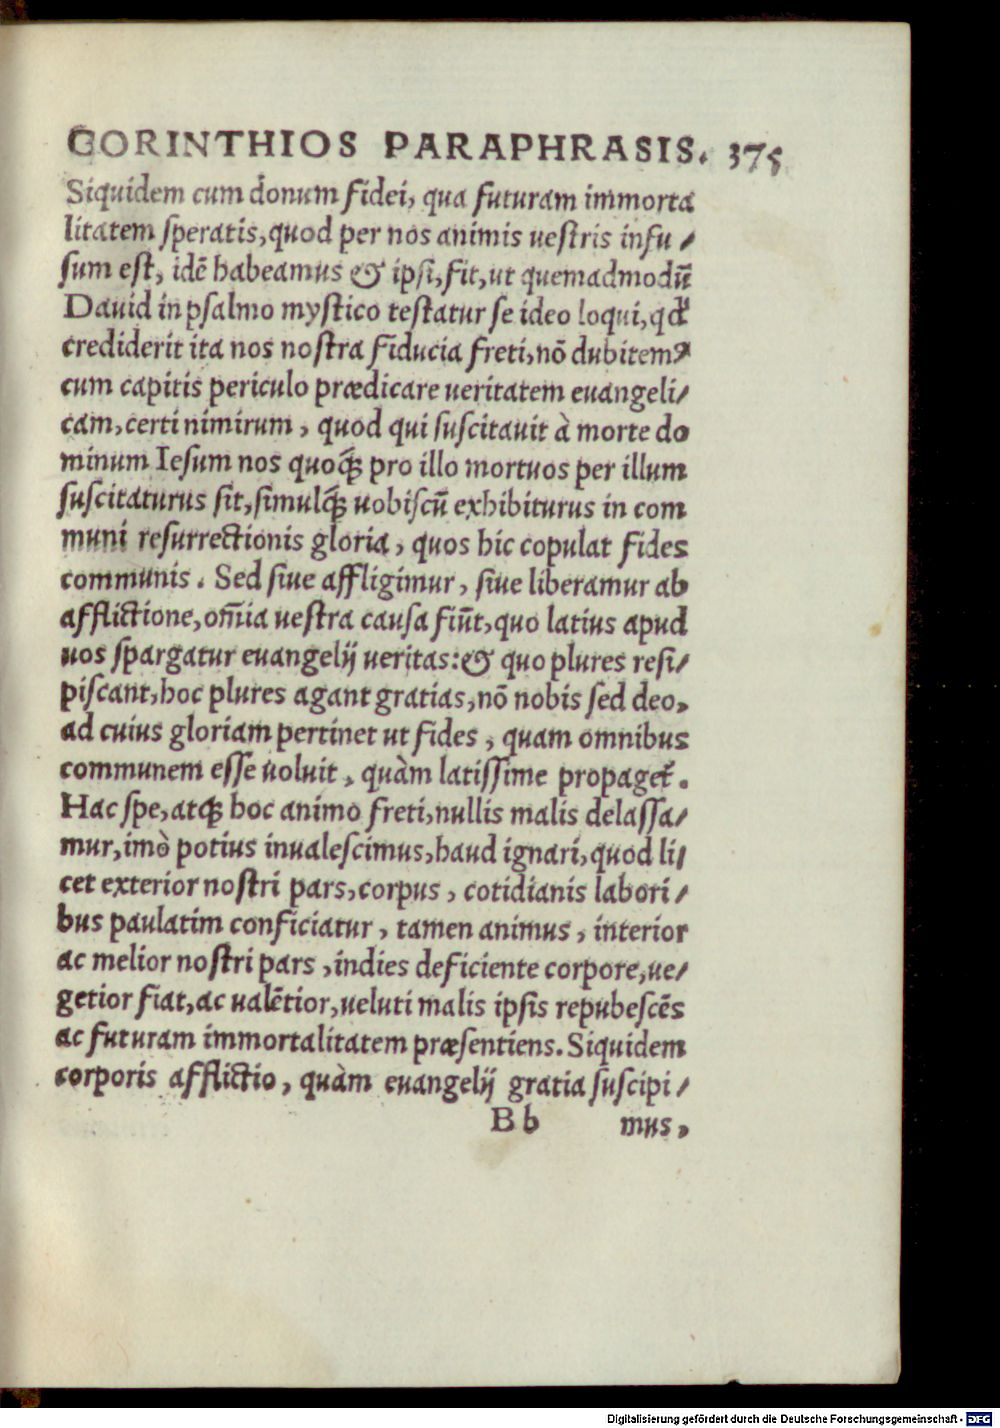 CORINTHIOS PARAPHRASIS. 375
Siquidem cum donum fidei, qua futuram immorta
litatem speratis, quod per nos animis uestris infu/
sum est, idē habeamus & ipsi, fit, ut quemadmodū
Dauid in psalmo mystico testatur se ideo loqui, qđ
crediderit ita nos nostra fiducia freti, nō dubitemꝰ
cum capitis periculo prædicare ueritatem euangeli/
cam, certi nimirum, quod qui suscitauit à morte do
minum Iesum nos quoq́; pro illo mortuos per illum
suscitaturus sit, simulq́; uobiscū exhibiturus in com
muni resurrectionis gloria, quos hic copulat fides
communis. Sed siue affligimur, siue liberamur ab
afflictione, om̄ia uestra causa fiūt, quo latius apud
uos spargatur euangelij ueritas: & quo plures resi/
piscant, hoc plures agant gratias, nō nobis sed deo,
ad cuius gloriam pertinet ut fides, quam omnibus
communem esse uoluit, quàm latissime propaget᷑.
Hac spe, atq́; hoc animo freti, nullis malis delassa/
mur, imò potius inualescimus, haud ignari, quod li/
cet exterior nostri pars, corpus, cotidianis labori/
bus paulatim conficiatur, tamen animus, interior
ac melior nostri pars, indies deficiente corpore, ue/
getior fiat, ac ualētior, ueluti malis ipsis repubescēs
ac futuram immortalitatem præsentiens. Siquidem
corporis afflictio, quàm euangelij gratia suscipi/
Bb mus,
Digitalisierung gefördert durch die Deutsche Forschungsgemeinschaft - DFG